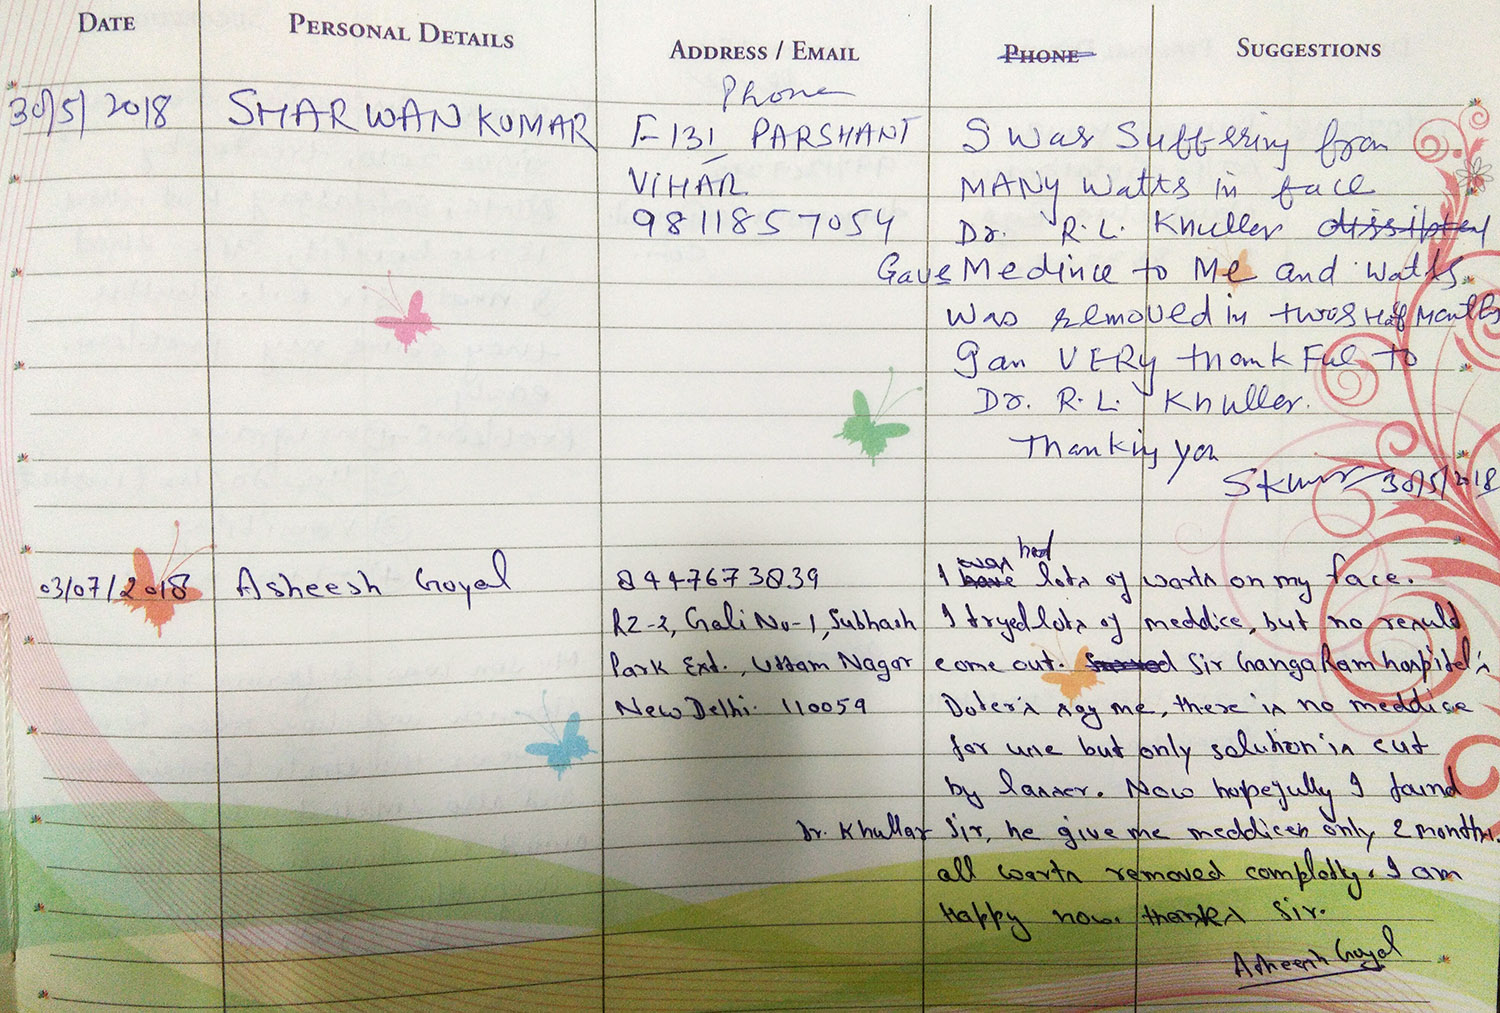 DATE PERSONAL DETAILS ADDRESS / EMAIL PHONE SUGGESTIONS
Phone
30/5/2018 SHARWAN KUMAR F-131 PARSHANT I was suffering from
VIHAR MANY watts in face
9811857054 Dr. R.L. Khuller
Gave Medince to Me and watts
was removed in twos Half Months
I am VERY thankful to
Dr. R.L. Khuller.
Thanking you
Skumar 30/5/2018
03/07/2018 Asheesh Goyal 8447673839 I had lots of warts on my face.
RZ-2, Gali No-1, Subhash I tryed lots of meddice, but no result
Park Ext., Uttam Nagar come out. Sir Ganga Ram hospital's
New Delhi. 110059 Doter's say me, there is no meddise
for use but only solution is cut
by lasser. Now hopefully I found
Dr. Khullar Sir, he give me meddices only 2 months.
all warts removed completly. I am
Happy now. thanks Sir.
Asheesh Goyal